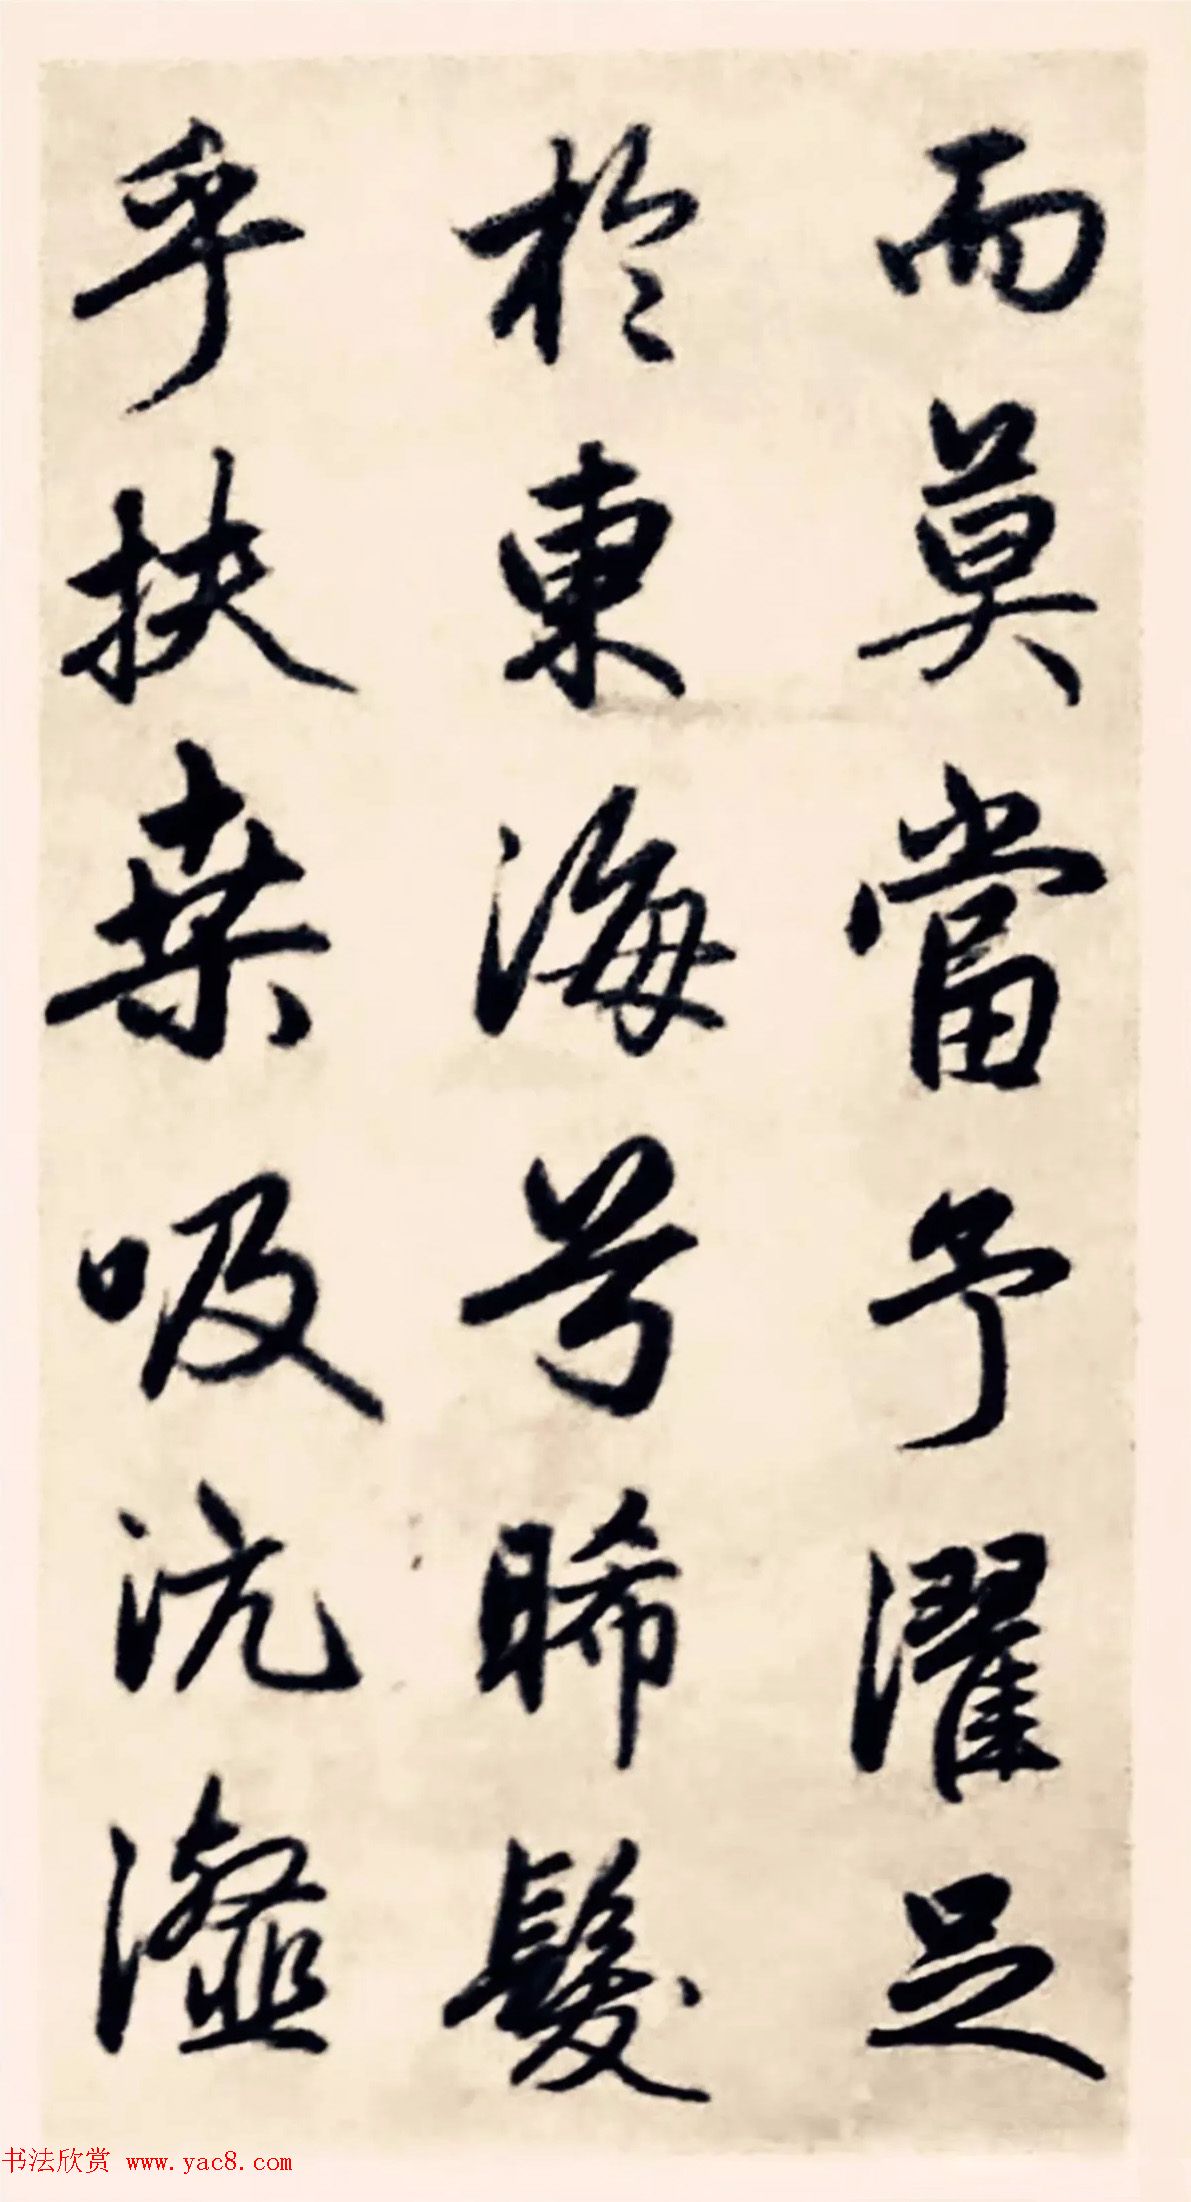 而莫當予濯足
於東海兮晞髮
乎扶桒吸沆瀣
书法欣赏 www.yac8.com